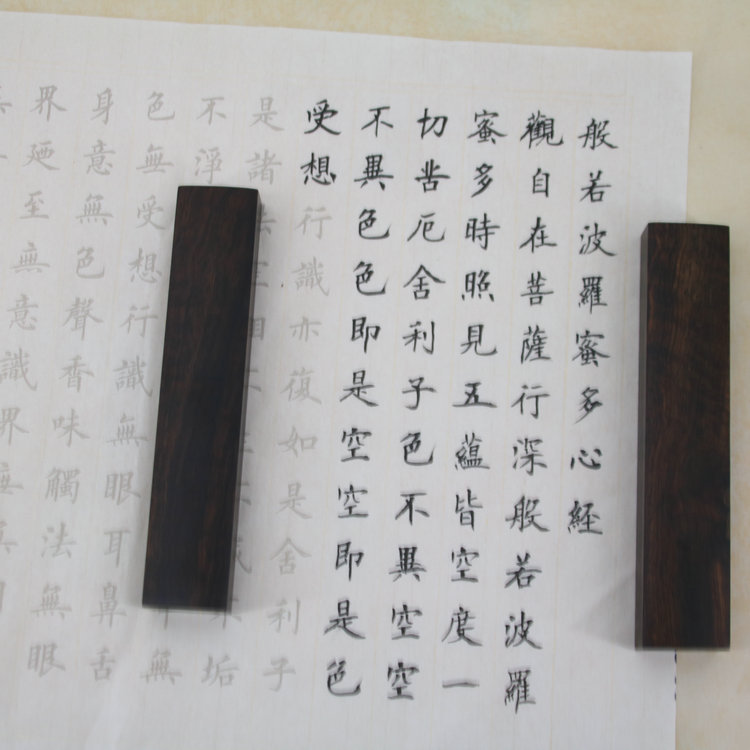 般若波羅蜜多心經
觀自在菩薩行深般若波羅
蜜多時照見五蘊皆空度一
切苦厄舍利子色不異空空
不異色色即是空空即是色
受想行識亦復如是舍利子
是諸垢
不淨無
色無受想行識無眼耳鼻舌
身意無色聲香味觸法無眼
界廼至無意識界無